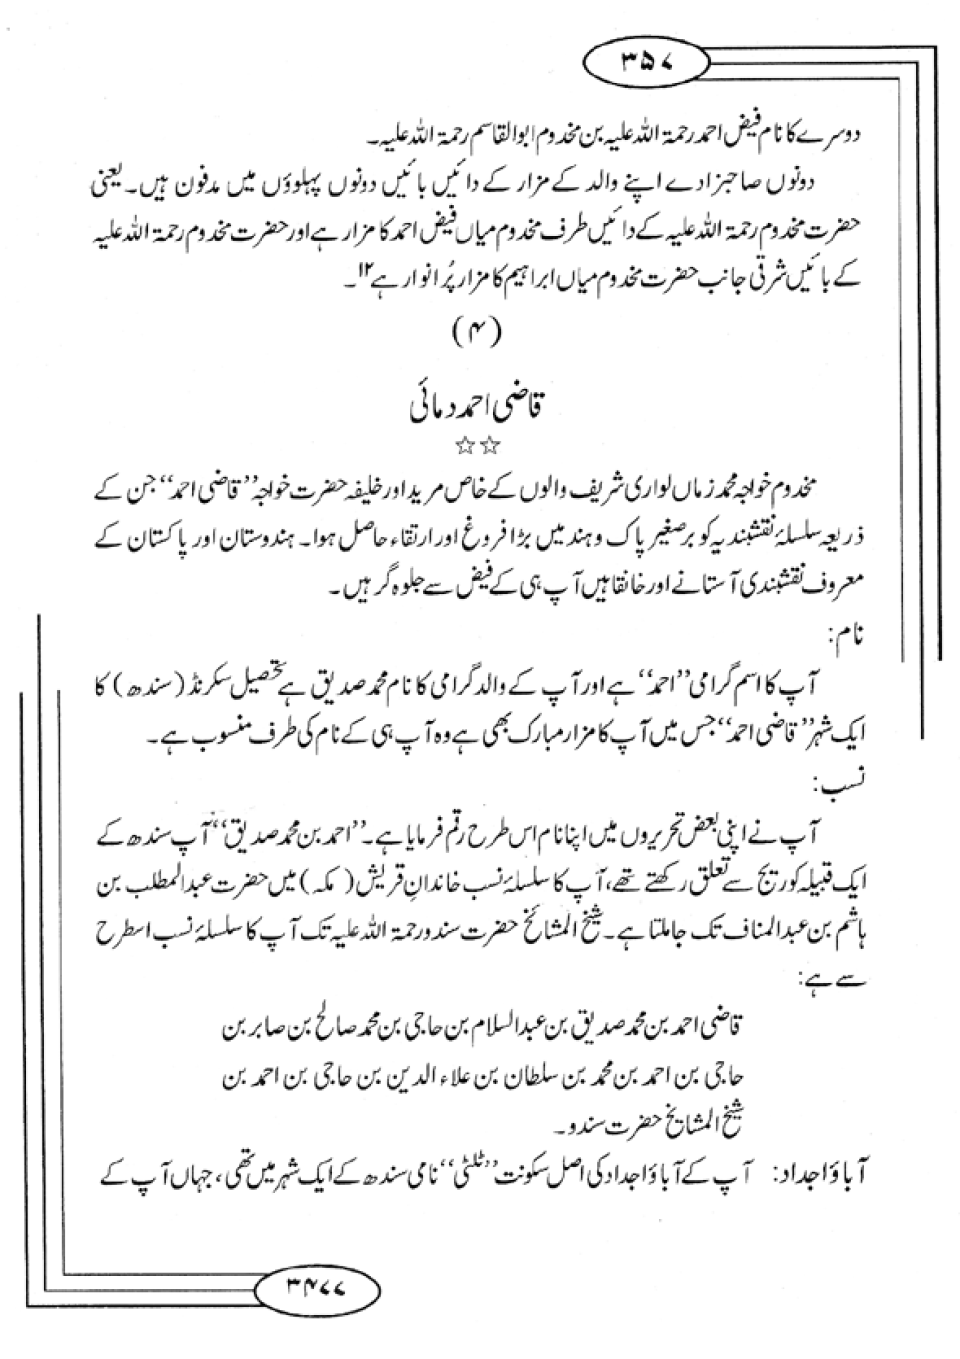 ۳۵۷
دوسرے کا نام فیض احمد رحمۃ اللہ علیہ بن مخدوم ابوالقاسم رحمۃ اللہ علیہ۔
دونوں صاحبزادے اپنے والد کے مزار کے دائیں بائیں دونوں پہلوؤں میں مدفون ہیں۔ یعنی
حضرت مخدوم رحمۃ اللہ علیہ کے دائیں طرف مخدوم میاں فیض احمد کا مزار ہے اور حضرت مخدوم رحمۃ اللہ علیہ
کے بائیں شرقی جانب حضرت مخدوم میاں ابراہیم کا مزار پُر انوار ہے ۱۲۔
(۴)
قاضی احمد دمائی
☆☆
مخدوم خواجہ محمد زماں لواری شریف والوں کے خاص مرید اور خلیفہ حضرت خواجہ ”قاضی احمد“ جن کے
ذریعہ سلسلۂ نقشبندیہ کو برصغیر پاک و ہند میں بڑا فروغ اور ارتقاء حاصل ہوا۔ ہندوستان اور پاکستان کے
معروف نقشبندی آستانے اور خانقاہیں آپ ہی کے فیض سے جلوہ گر ہیں۔
نام:
آپ کا اسم گرامی ”احمد“ ہے اور آپ کے والد گرامی کا نام محمد صدیق ہے تحصیل سکرنڈ (سندھ) کا
ایک شہر ”قاضی احمد“ جس میں آپ کا مزار مبارک بھی ہے وہ آپ ہی کے نام کی طرف منسوب ہے۔
نسب:
آپ نے اپنی بعض تحریروں میں اپنا نام اس طرح رقم فرمایا ہے۔ ”احمد بن محمد صدیق“ آپ سندھ کے
ایک قبیلہ کوریج سے تعلق رکھتے تھے، آپ کا سلسلۂ نسب خاندانِ قریش (مکہ) میں حضرت عبدالمطلب بن
ہاشم بن عبدالمناف تک جا ملتا ہے۔ شیخ المشائخ حضرت سندو رحمۃ اللہ علیہ تک آپ کا سلسلۂ نسب اسطرح
سے ہے:
قاضی احمد بن محمد صدیق بن عبدالسلام بن حاجی بن محمد صالح بن صابر بن
حاجی بن احمد بن محمد بن سلطان بن علاء الدین بن حاجی بن احمد بن
شیخ المشایخ حضرت سندو۔
آباؤ اجداد: آپ کے آباؤ اجداد کی اصل سکونت ”ٹلٹی“ نامی سندھ کے ایک شہر میں تھی، جہاں آپ کے
۳۴۷۷